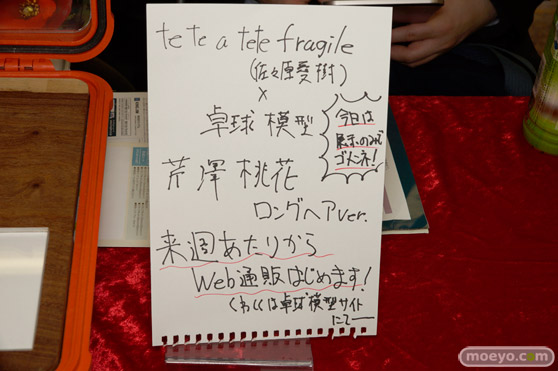 te te a tete fragile
(佐々原愛樹)
×
卓球模型
今日は
展示のみで
ゴメンネ!
芹澤桃花
ロングヘアver.
来週あたりから
Web通販はじめます!
くわしくは卓球模型サイト
にて
moeyo.com